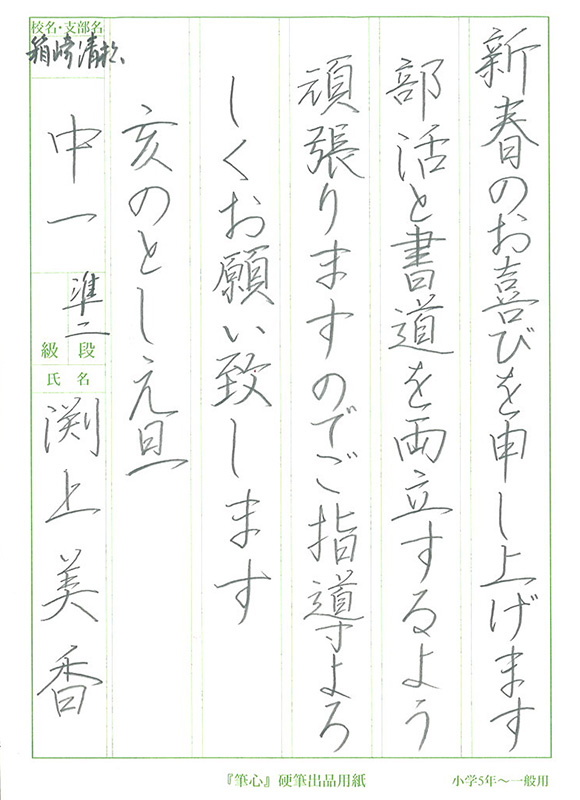 新春のお喜びを申し上げます
部活と書道を両立するよう
頑張りますのでご指導よろ
しくお願い致します
亥のとし元旦
校名・支部名
箱崎清松
中一
準二
級 段
氏 名
渕上美香
『筆心』硬筆出品用紙
小学5年～一般用